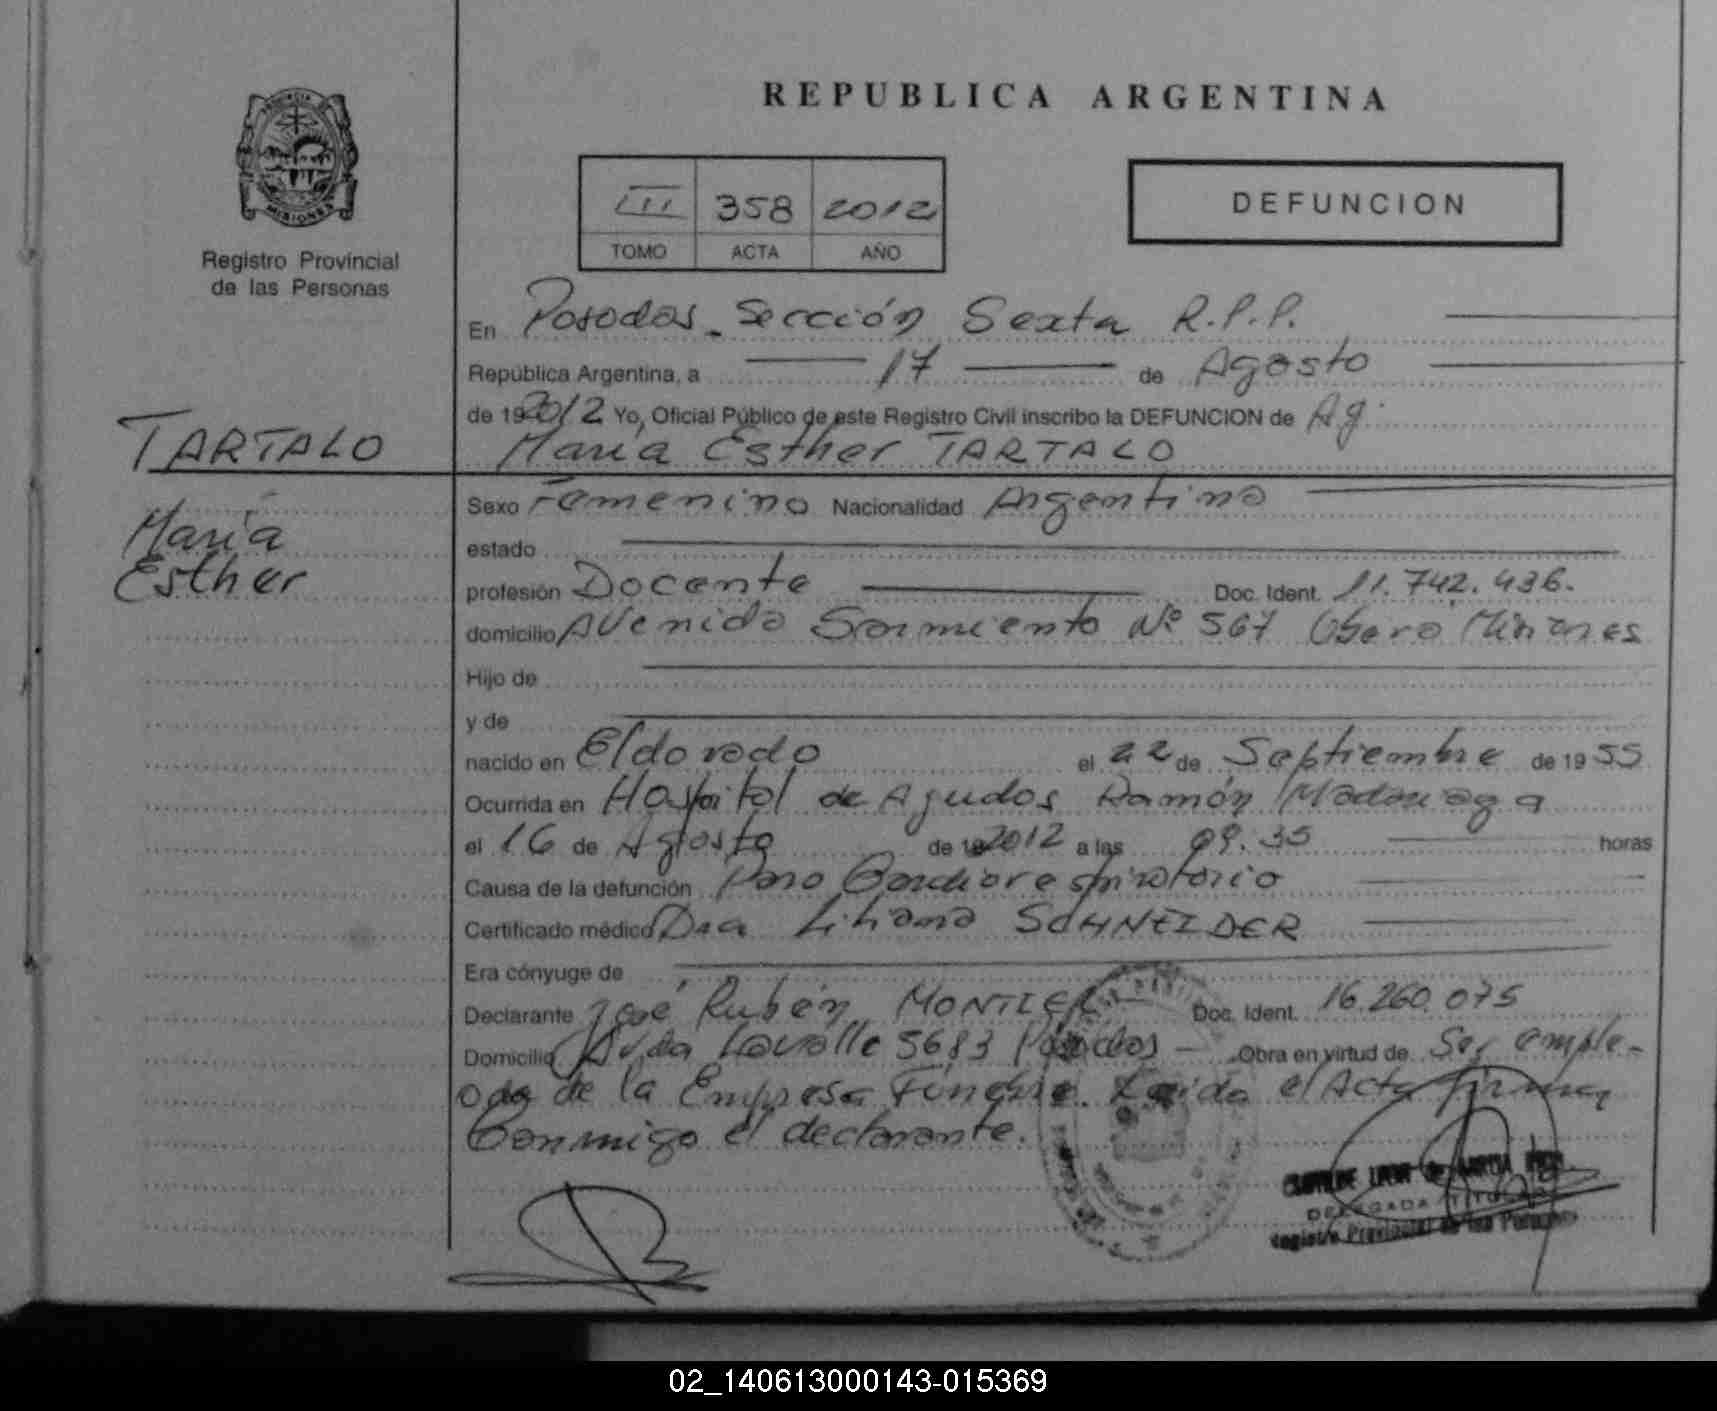 REPUBLICA ARGENTINA
PROVINCIA DE
MISIONES
Registro Provincial
de las Personas
III 358 2012
TOMO ACTA AÑO
DEFUNCION
En Posadas - Sección Sexta R.P.P.
República Argentina, a 17 de Agosto
de 192012 Yo, Oficial Público de este Registro Civil inscribo la DEFUNCION de Ag.
TARTALO
María Esther TARTALO
María
Esther
Sexo Femenino Nacionalidad Argentina
estado
profesión Docente Doc. Ident. 11.742.436.
domicilio Avenida Sarmiento Nº 567 Oberá Misiones
Hijo de
y de
nacido en Eldorado el 22 de Septiembre de 1955
Ocurrida en Hospital de Agudos Ramón Madariaga
el 16 de Agosto de 192012 a las 09.35 horas
Causa de la defunción Paro Cardiorespiratorio
Certificado médico Dra Liliana SCHNEIDER
Era cónyuge de
Declarante José Rubén MONTIEL Doc. Ident. 16.260.075
Domicilio Avda Lavalle 5683 Posadas - Obra en virtud de Ser emple-
ado de la Empresa Fúnebre. Leída el Acta firma
Conmigo el declarante.
DELEGADA TITULAR
Registro Provincial de las Personas
02_140613000143-015369